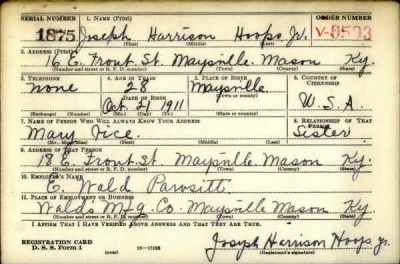 SERIAL NUMBER 1. NAME (Print) ORDER NUMBER
1875 Joseph Harrison Hoops Jr. V-8533
(First) (Middle) (Last)
2. ADDRESS (Print)
16 E. Front St. Maysville. Mason Ky.
(Number and street or R. F. D. number) (Town) (County) (State)
3. TELEPHONE 4. AGE IN YEARS 5. PLACE OF BIRTH 6. COUNTRY OF CITIZENSHIP
None 28 Maysville
DATE OF BIRTH (Town or county)
Oct. 2, 1911 Ky. U.S.A.
(Exchange) (Number) (Mo.) (Day) (Yr.) (State or country)
7. NAME OF PERSON WHO WILL ALWAYS KNOW YOUR ADDRESS 8. RELATIONSHIP OF THAT PERSON
Mary Vice. Sister
(Mr., Mrs., Miss) (First) (Middle) (Last)
9. ADDRESS OF THAT PERSON
18 E. Front St. Maysville. Mason Ky.
(Number and street or R. F. D. number) (Town) (County) (State)
10. EMPLOYER'S NAME
E. Wald
11. PLACE OF EMPLOYMENT OR BUSINESS
Wald's Mfg. Co. Maysville Mason Ky
(Number and street or R. F. D. number) (Town) (County) (State)
I AFFIRM THAT I HAVE VERIFIED ABOVE ANSWERS AND THAT THEY ARE TRUE.
REGISTRATION CARD
D. S. S. Form 1
(over)
Joseph Harrison Hoops Jr.
(Registrant's signature)